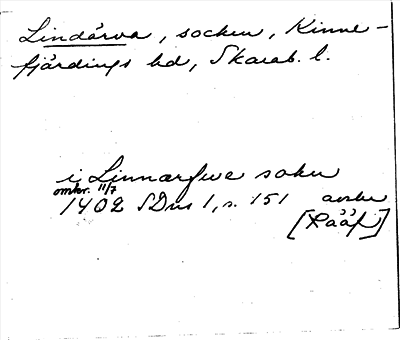 Lindärva, socken, Kinne-
fjärdings hd, Skarab. l.
i Linnarfwe sokn
omkr. 11/7
1402 SDns 1, s. 151 avskr
[Rääf]